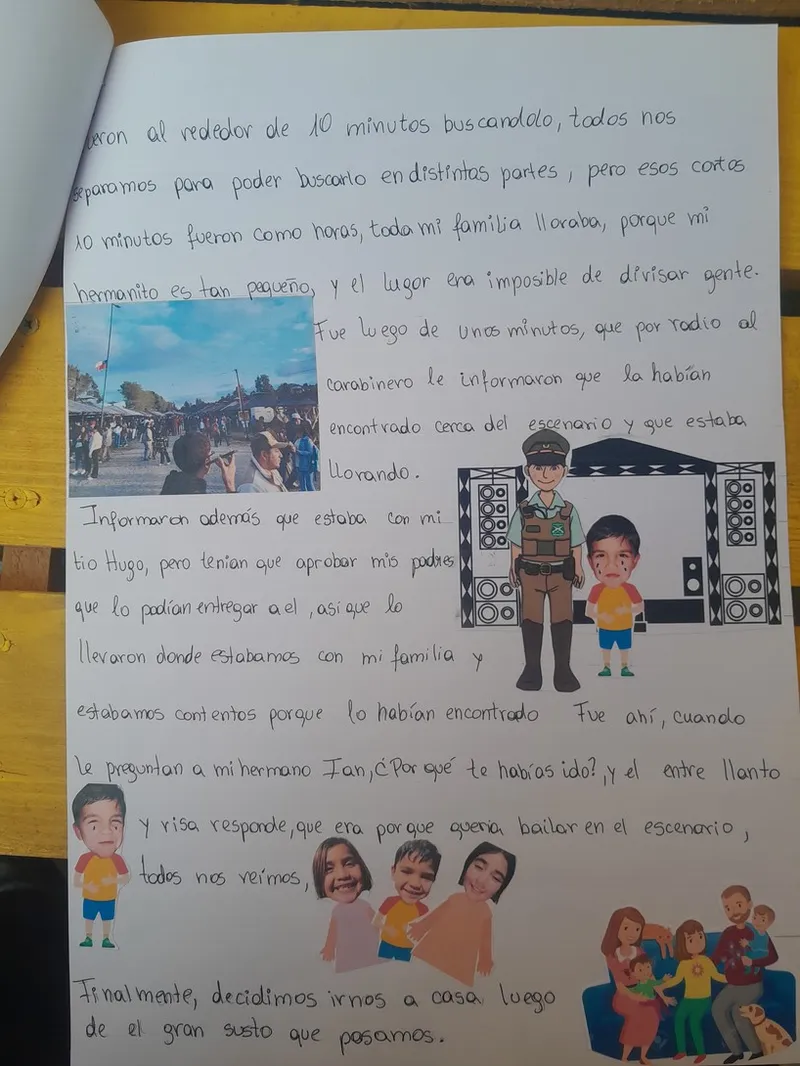 eron al rededor de 10 minutos buscandolo, todos nos
separamos para poder buscarlo en distintas partes, pero esos cortos
10 minutos fueron como horas, toda mi familia lloraba, porque mi
hermanito es tan pequeño, y el lugar era imposible de divisar gente.
Fue luego de unos minutos, que por radio al
carabinero le informaron que la habían
encontrado cerca del escenario y que estaba
llorando.
Informaron además que estaba con mi
tio Hugo, pero tenian que aprobar mis padres
que lo podían entregar a el, asi que lo
llevaron donde estabamos con mi familia y
estabamos contentos porque lo habían encontrado Fue ahí, cuando
le preguntan a mi hermano Ian, ¿Por qué te habías ido?, y el entre llanto
y risa responde, que era por que queria bailar en el escenario,
todos nos reímos,
Finalmente, decidimos irnos a casa luego
de el gran susto que pasamos.